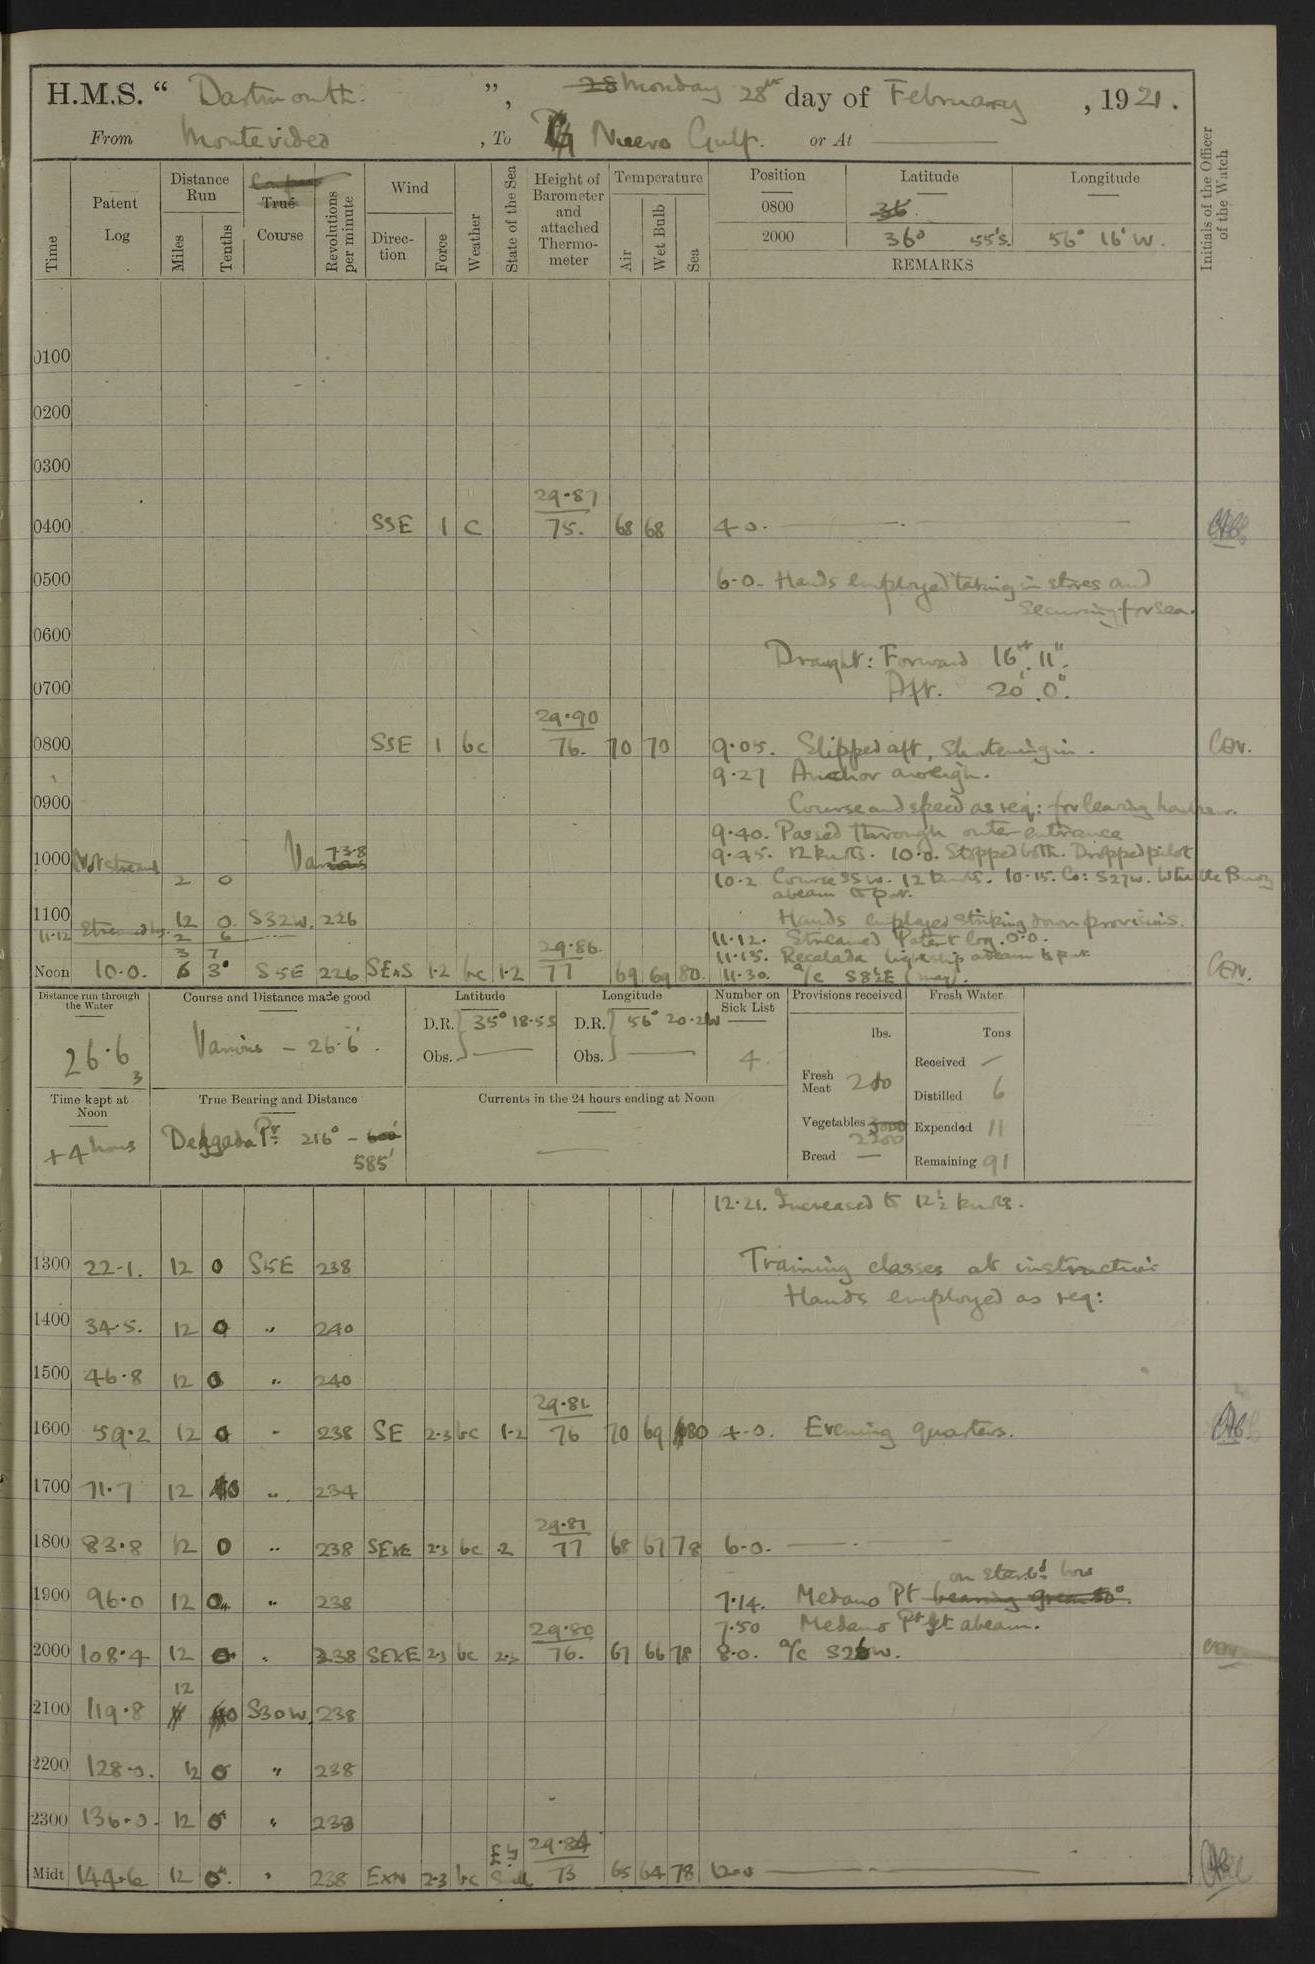 H.M.S. “ Dartmouth. ”, Monday 28th day of February, 1921.
From Montevideo, To Nuevo Gulf. or At
Time
Patent Log
Distance Run
Miles
Tenths
True Course
Revolutions per minute
Wind
Direction
Force
Weather
State of the Sea
Height of Barometer and attached Thermometer
Temperature
Air
Wet Bulb
Sea
Position Latitude Longitude
0800 36
2000 36° 55's. 56° 16' W.
REMARKS
Initials of the Officer of the Watch
0100
0200
0300
29.87
0400 SSE 1 c 75. 68 68 4.0.
0500 6.0. Hands employed taking in stores and
securing for sea.
0600
Draught: Forward 16'. 11".
0700 Aft. 20'. 0".
29.90
0800 SSE 1 bc 76. 70 70 9.05. Slipped aft, shortening in.
9.27 Anchor aweigh.
0900 Course and speed as req: for leaving harbour.
9.40. Passed through outer entrance
1000 Not streamed 2 0 738 9.45. 12 knots. 10.0. Stopped both. Dropped pilot
10.2 Course SSW. 12 knots. 10.15. Co: S27W. Whistle Buoy
abeam to port.
1100 12 0 S32W. 226 Hands employed striking down provisions.
11.12 Streamed log. 2 6 11.12. Streamed Patent log. 0.0.
3 7 29.86 11.15. Recalada lightship abeam to port.
Noon 10.0. 6 3 S5E 226 SExS 1.2 bc 1.2 77 69 69 80. 11.30. a/c S8½E (mag).
Distance run through the Water
26.6
3
Course and Distance made good
Various - 26.6'.
Latitude
D.R. 35° 18.5S
Obs.
Longitude
D.R. 56° 20.2W
Obs.
Number on Sick List
4.
Provisions received
lbs.
Fresh Meat 280
Vegetables 3000
2200
Bread —
Fresh Water
Tons
Received —
Distilled 6
Expended 11
Remaining 91
Time kept at Noon
+4 hours
True Bearing and Distance
Delgada Pt. 216° - 600'
585'
Currents in the 24 hours ending at Noon
12.21. Increased to 12½ knots.
1300 22.1. 12 0 S5E 238 Training classes at instruction
Hands employed as req:
1400 34.5. 12 0 " 240
1500 46.8 12 0 " 240
29.81
1600 59.2 12 0 " 238 SE 2.3 bc 1.2 76 70 69 80 4.0. Evening quarters.
1700 71.7 12 0 " 234
29.81
1800 83.8 12 0 " 238 SExE 2.3 bc .2 77 68 67 78 6.0.
on starbd. bow
1900 96.0 12 0 " 238 7.14. Medano Pt bearing green 50°.
29.80 7.50 Medano Pt Lt abeam.
2000 108.4 12 0 " 238 SExE 2.3 bc 2.3 76. 67 66 78 8.0. a/c S26W.
12
2100 119.8 0 S30W. 238
2200 128.0. 12 0 " 238
2300 136.0. 12 0 " 238
29.84
Midt 144.6 12 0. " 238 ExN 2.3 bc 73 65 64 78 1200